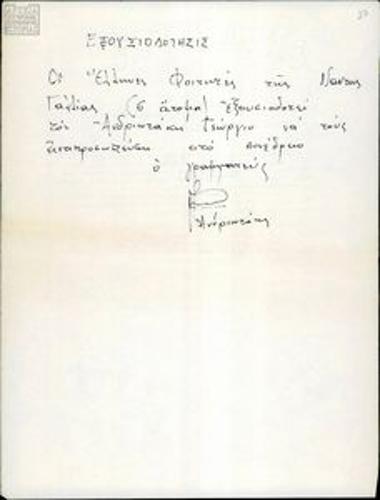 ΕΞΟΥΣΙΟΔΟΤΗΣΙΣ
Οἱ Ἕλληνες Φοιτητές τῆς Νάντης
Γαλλίας (5 ἄτομα) ἐξουσιοδοτεῖ
τόν Ἀνδριωτάκη Γεώργιο νά τούς
ἀντιπροσωπεύση στό συνέδριο
ὁ γραμματεύς
Ἀνδριωτάκης